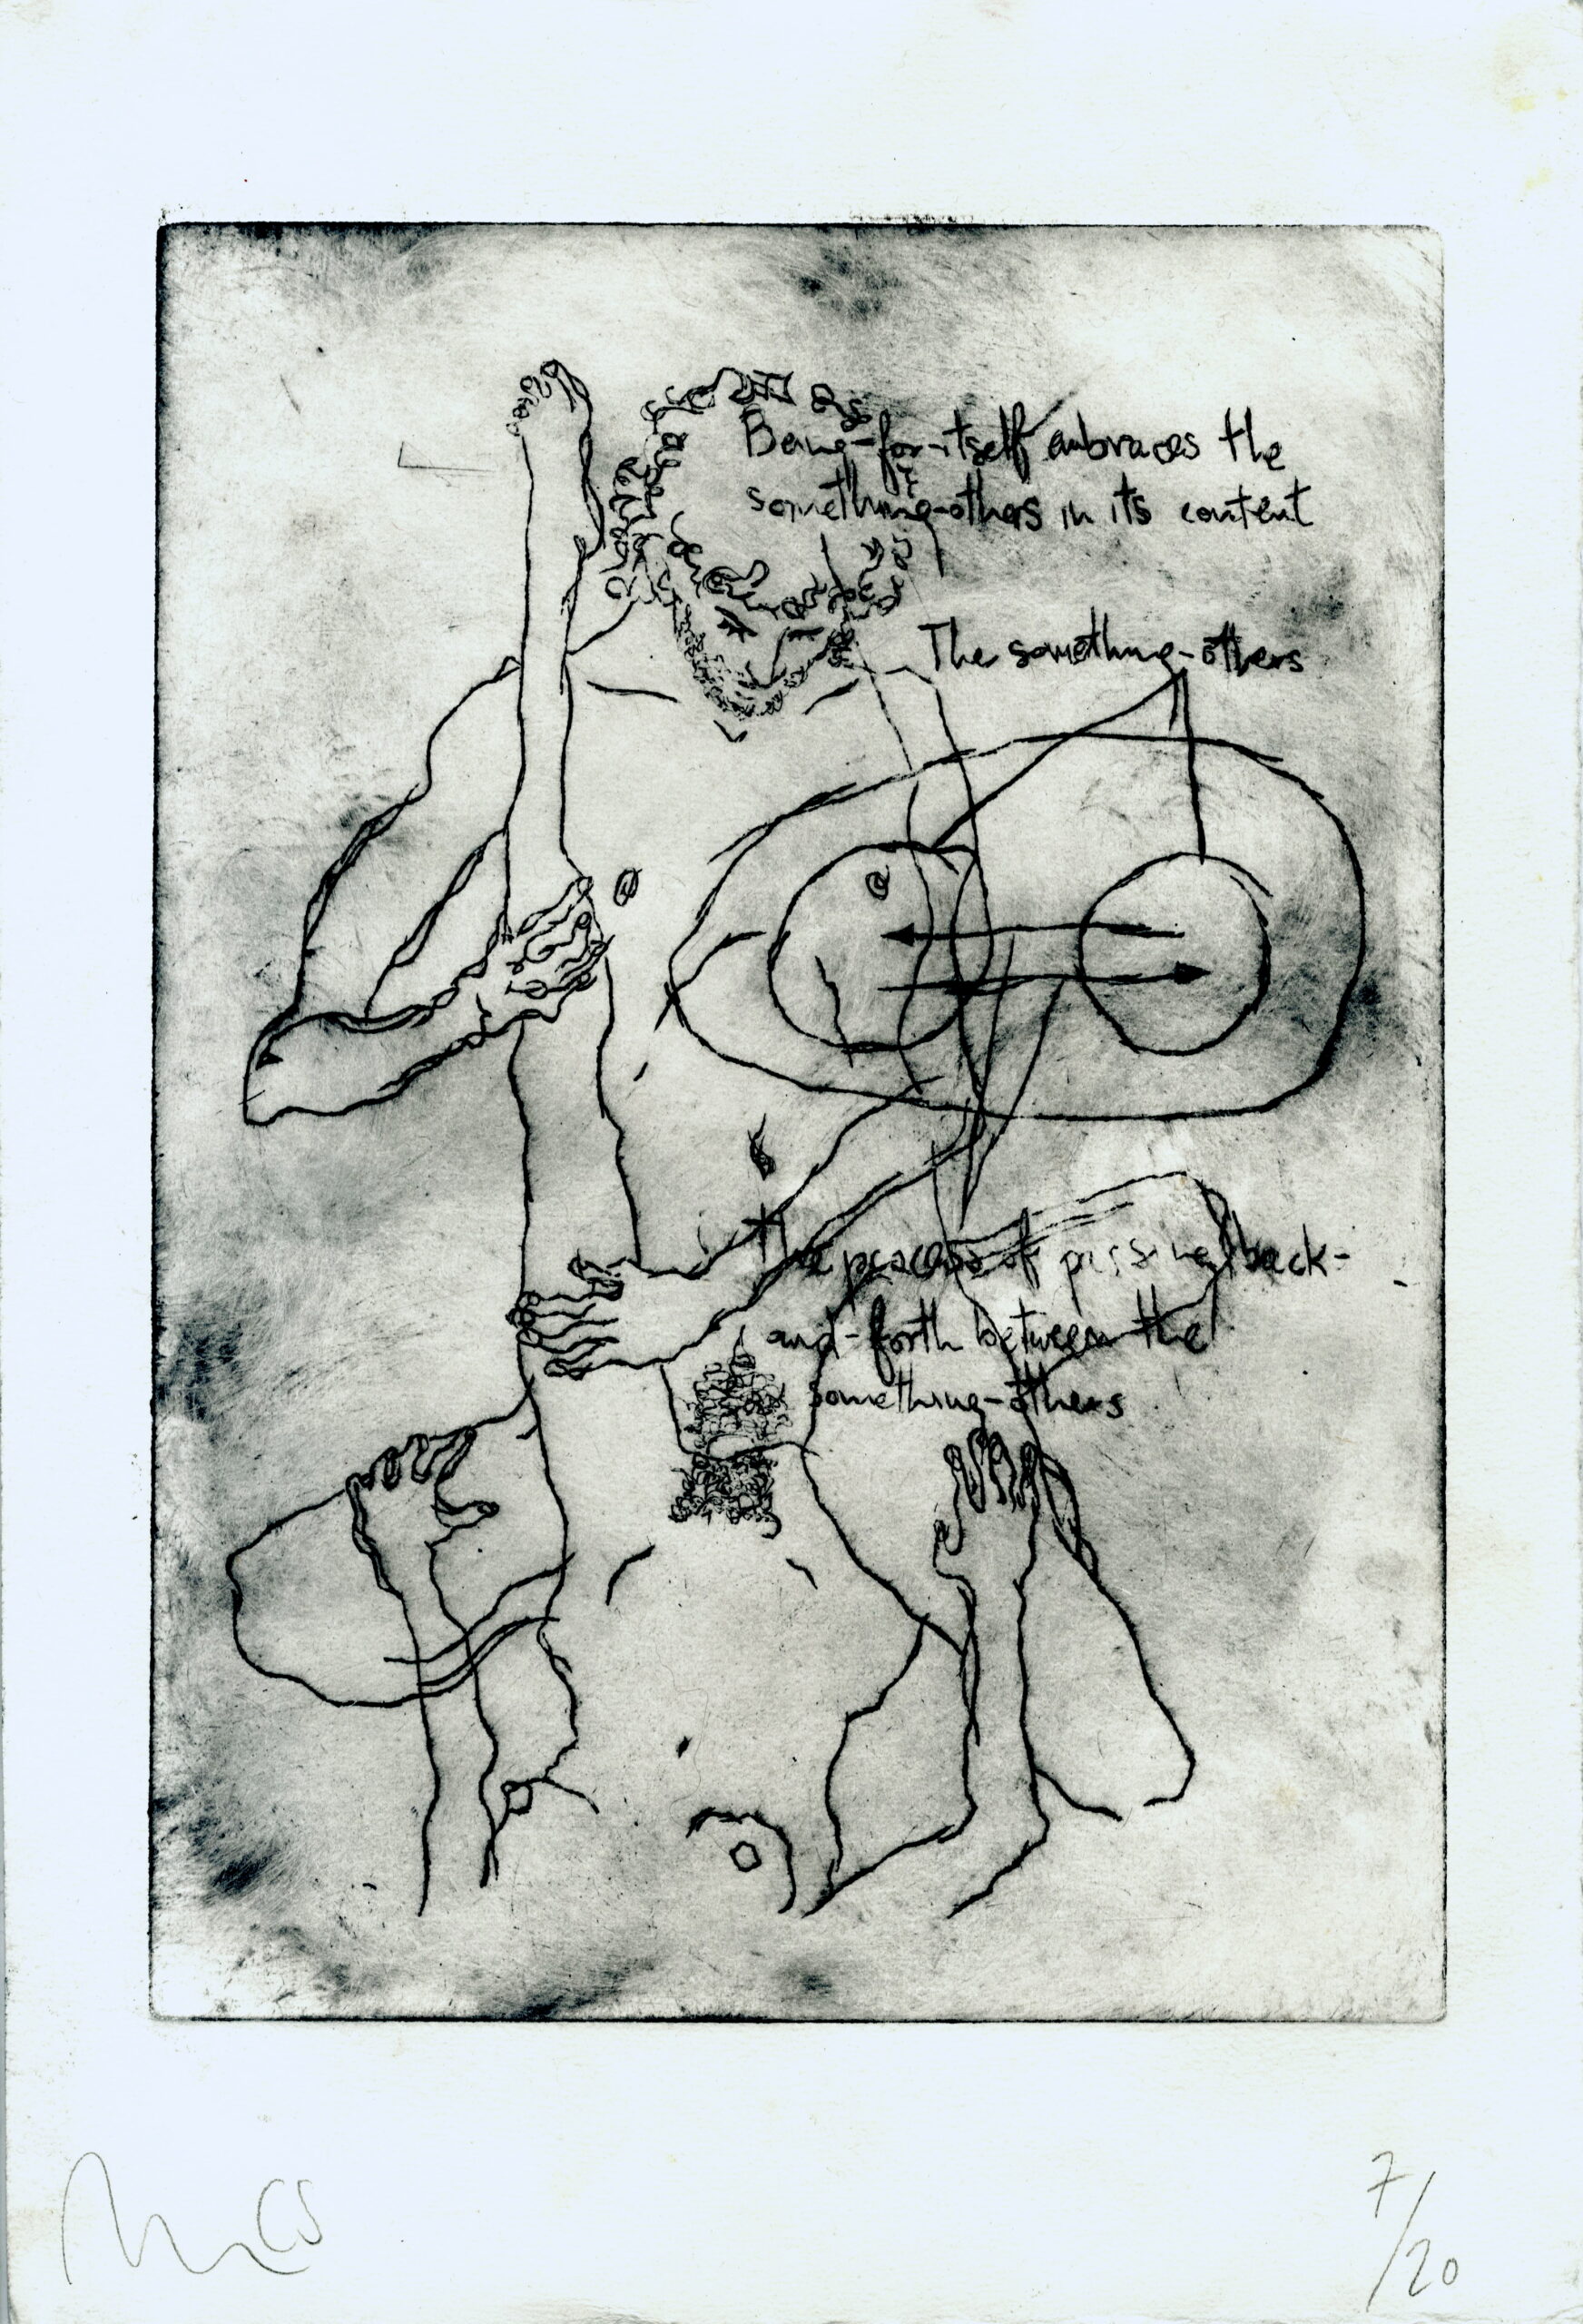 Being-for-itself embraces the
something-others in its content
The something-others
The process of passing back-
and-forth between the
something-others
7/20